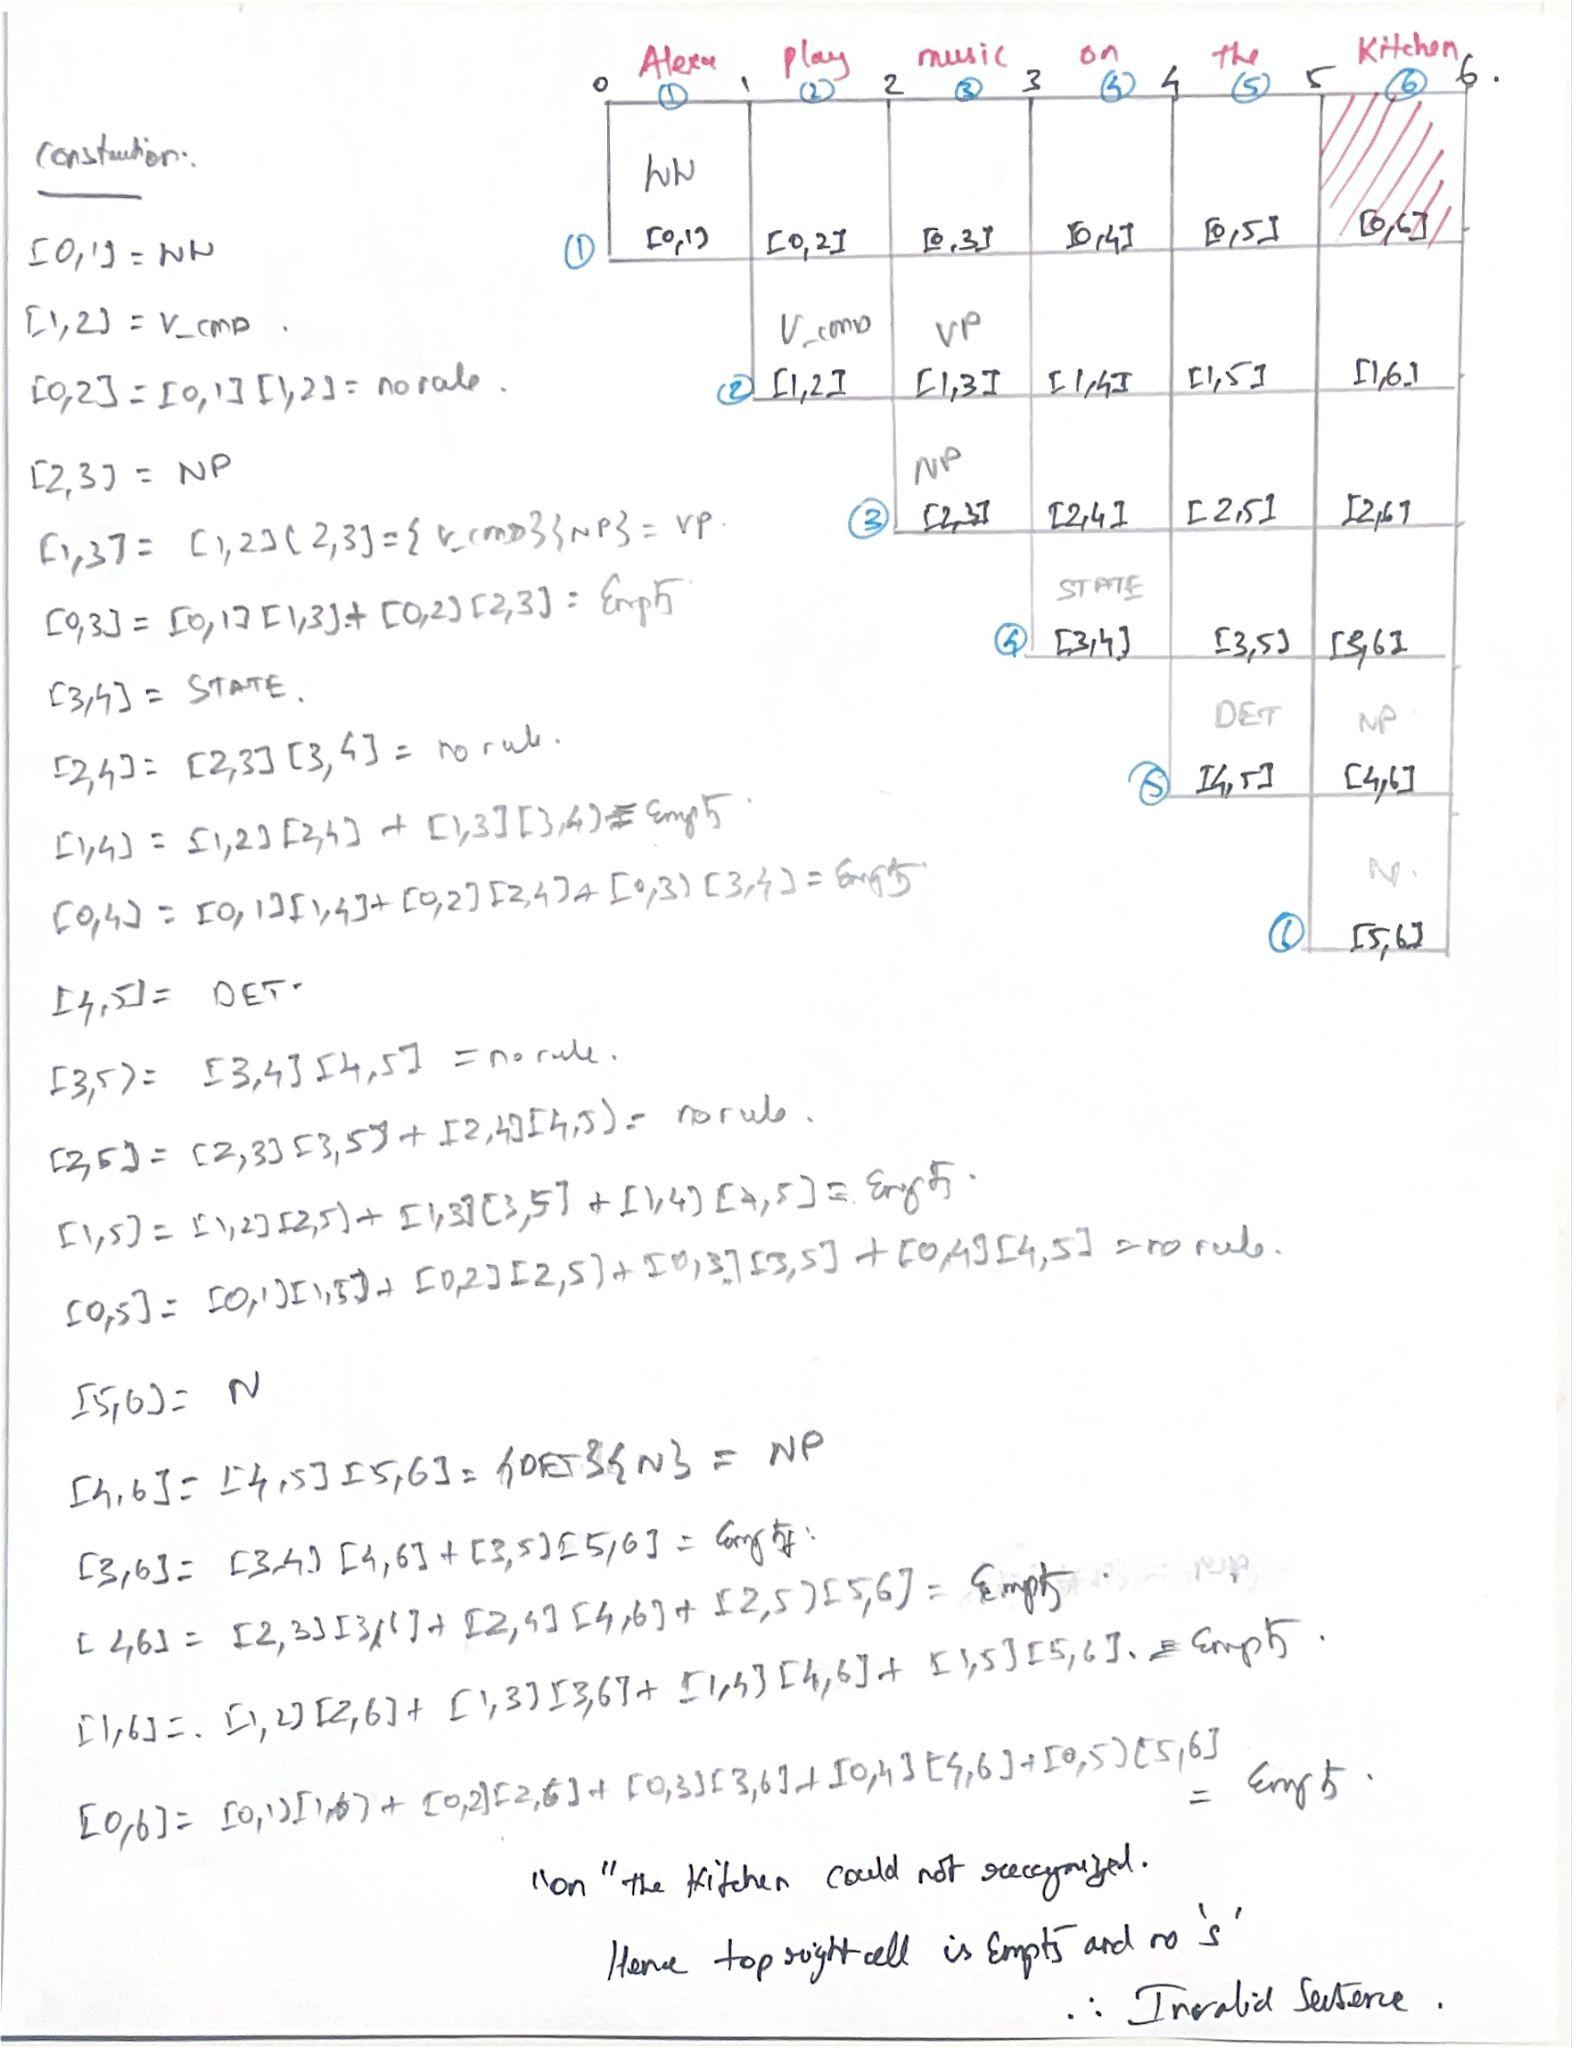 Alexa play music on the Kitchen
0 1 2 3 4 5 6.
① ② ③ ④ ⑤ ⑥
Construction:
NN
① [0,1] [0,2] [0,3] [0,4] [0,5] [0,6]
V_CMD VP
② [1,2] [1,3] [1,4] [1,5] [1,6]
NP
③ [2,3] [2,4] [2,5] [2,6]
STATE
④ [3,4] [3,5] [3,6]
DET NP
⑤ [4,5] [4,6]
N.
⑥ [5,6]
[0,1] = NN
[1,2] = V_CMD.
[0,2] = [0,1] [1,2] = no rule.
[2,3] = NP
[1,3] = [1,2] [2,3] = {V_CMD}{NP} = VP.
[0,3] = [0,1] [1,3] + [0,2] [2,3] = Empty
[3,4] = STATE.
[2,4] = [2,3] [3,4] = no rule.
[1,4] = [1,2] [2,4] + [1,3] [3,4] = Empty.
[0,4] = [0,1] [1,4] + [0,2] [2,4] + [0,3] [3,4] = Empty
[4,5] = DET.
[3,5] = [3,4] [4,5] = no rule.
[2,5] = [2,3] [3,5] + [2,4] [4,5] = no rule.
[1,5] = [1,2] [2,5] + [1,3] [3,5] + [1,4] [4,5] = Empty.
[0,5] = [0,1] [1,5] + [0,2] [2,5] + [0,3] [3,5] + [0,4] [4,5] = no rule.
[5,6] = N
[4,6] = [4,5] [5,6] = {DET}{N} = NP
[3,6] = [3,4] [4,6] + [3,5] [5,6] = Empty.
[2,6] = [2,3] [3,6] + [2,4] [4,6] + [2,5] [5,6] = Empty.
[1,6] = . [1,2] [2,6] + [1,3] [3,6] + [1,4] [4,6] + [1,5] [5,6]. = Empty.
[0,6] = [0,1] [1,6] + [0,2] [2,6] + [0,3] [3,6] + [0,4] [4,6] + [0,5] [5,6] = Empty.
"on" the Kitchen could not recognized.
Hence top right cell is Empty and no 's'
∴ Invalid Sentence.